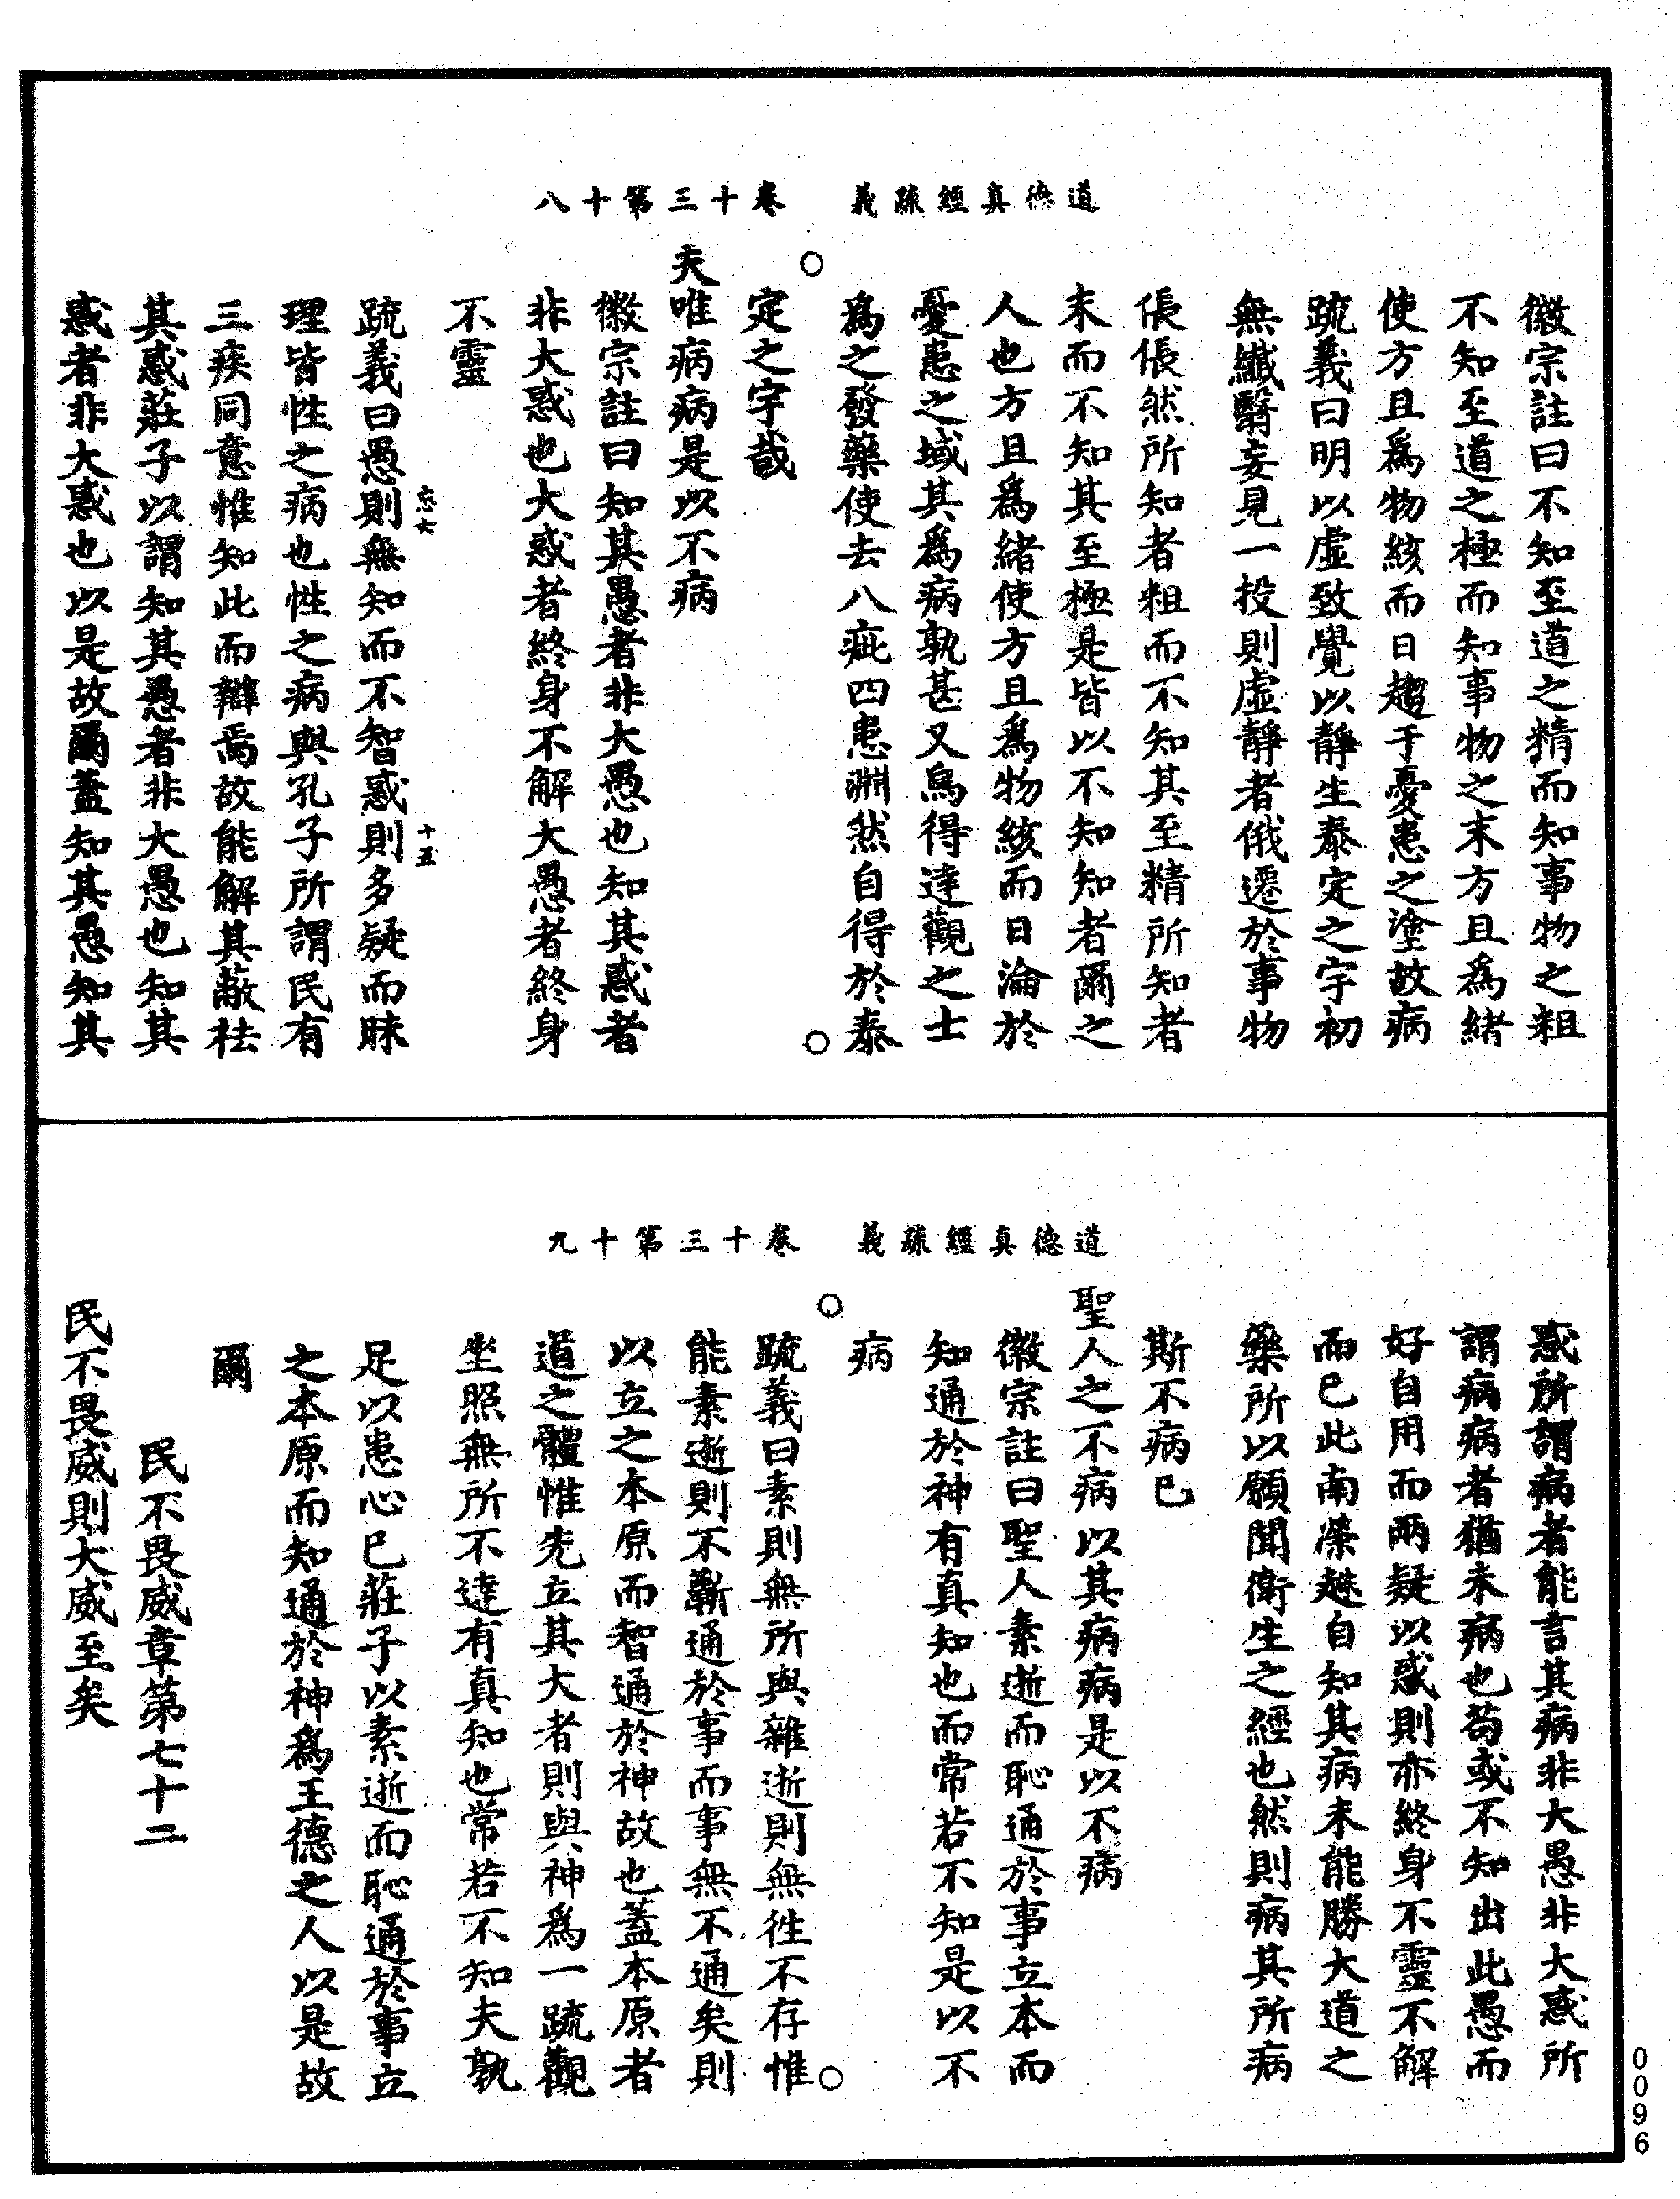 道德真經疏義　卷十三第十八
徽宗註曰不知至道之精而知事物之粗
不知至道之極而知事物之末方且為緒
使方且為物絯而日趨于憂患之塗故病
疏義曰明以虛致覺以靜生泰定之宇初
無纖翳妄見一投則虛靜者俄遷於事物
倀倀然所知者粗而不知其至精所知者
末而不知其至極是皆以不知知者爾之
人也方且為緒使方且為物絯而日淪於
憂患之域其為病孰甚又烏得達觀之士
為之發藥使去八疵四患淵然自得於泰
定之宇哉
夫唯病病是以不病
徽宗註曰知其愚者非大愚也知其惑者
非大惑也大惑者終身不解大愚者終身
不靈
忘六　十五
疏義曰愚則無知而不智惑則多疑而昧
理皆性之病也性之病與孔子所謂民有
三疾同意惟知此而辯焉故能解其蔽祛
其惑莊子以謂知其愚者非大愚也知其
惑者非大惑也以是故爾蓋知其愚知其
道德真經疏義　卷十三第十九
惑所謂病者能言其病非大愚非大惑所
謂病病者猶未病也苟或不知出此愚而
好自用而兩疑以惑則亦終身不靈不解
而已此南榮趎自知其病未能勝大道之
藥所以願聞衛生之經也然則病其所病
斯不病已
聖人之不病以其病病是以不病
徽宗註曰聖人素逝而恥通於事立本而
知通於神有真知也而常若不知是以不
病
疏義曰素則無所與雜逝則無往不存惟
能素逝則不蘄通於事而事無不通矣則
以立之本原而智通於神故也蓋本原者
道之體惟先立其大者則與神為一疏觀
坐照無所不達有真知也常若不知夫孰
足以患心已莊子以素逝而恥通於事立
之本原而知通於神為王德之人以是故
爾
民不畏威章第七十二
民不畏威則大威至矣
0096